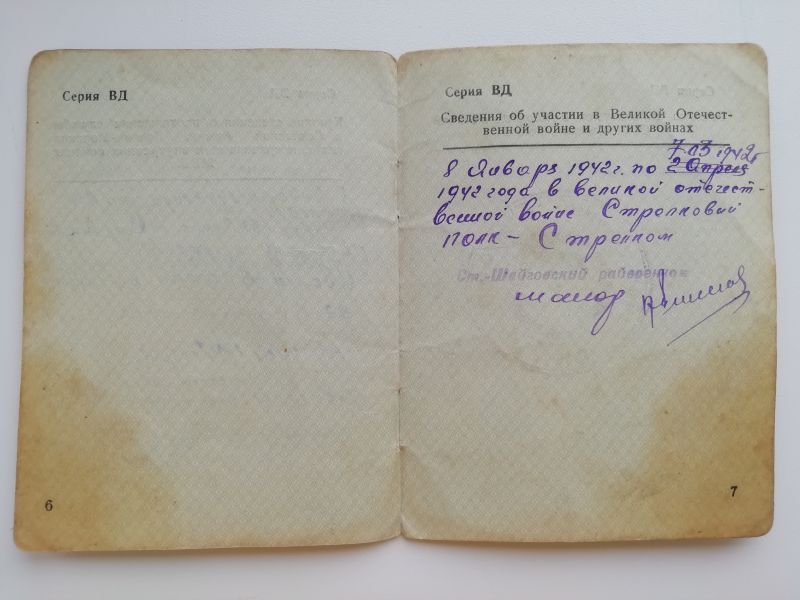 Серия ВД
6
Серия ВД
Сведения об участии в Великой Отечест-
венной войне и других войнах
7.03 1942г
8 Января 1942г. по 2 Апреля
1942 года в великой отечест-
венной войне Стрелковый
полк - Стрелком
Ст.-Шайговский райвоенком
майор
7